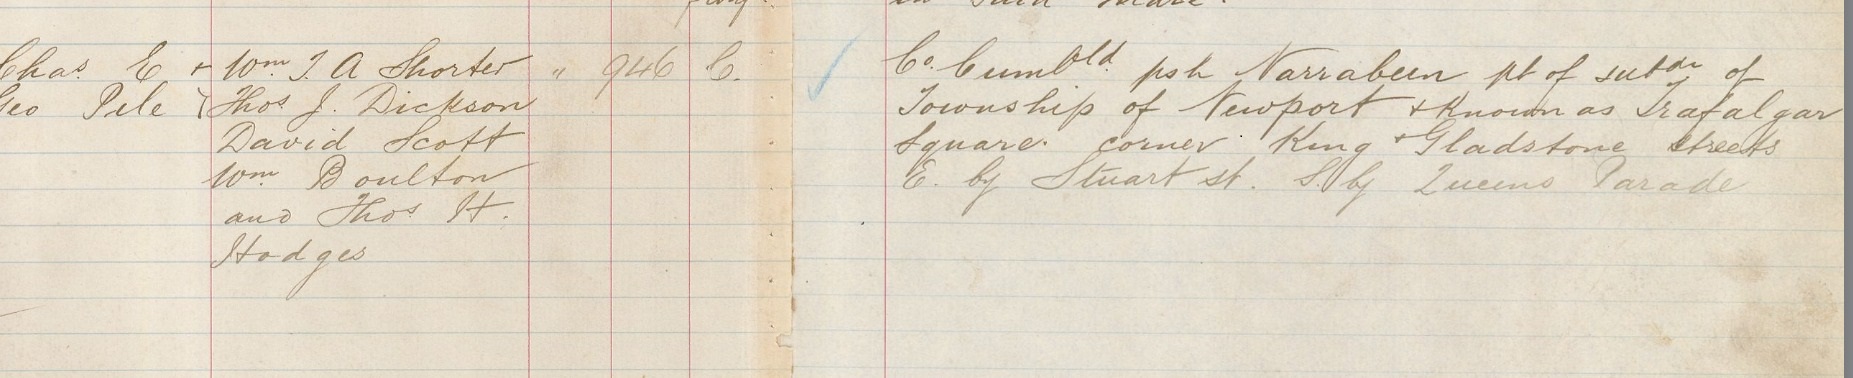 in said
Chas. E + Wm. T. A Shorter " 946 C. Co. Cumbld. psh Narrabeen pt of subdn of
Geo Pile Thos J. Dickson Township of Newport + known as Trafalgar
David Scott Square. corner King + Gladstone streets
Wm. Boulton E. by Stuart st. S. by Queens Parade
and Thos H.
Hodges